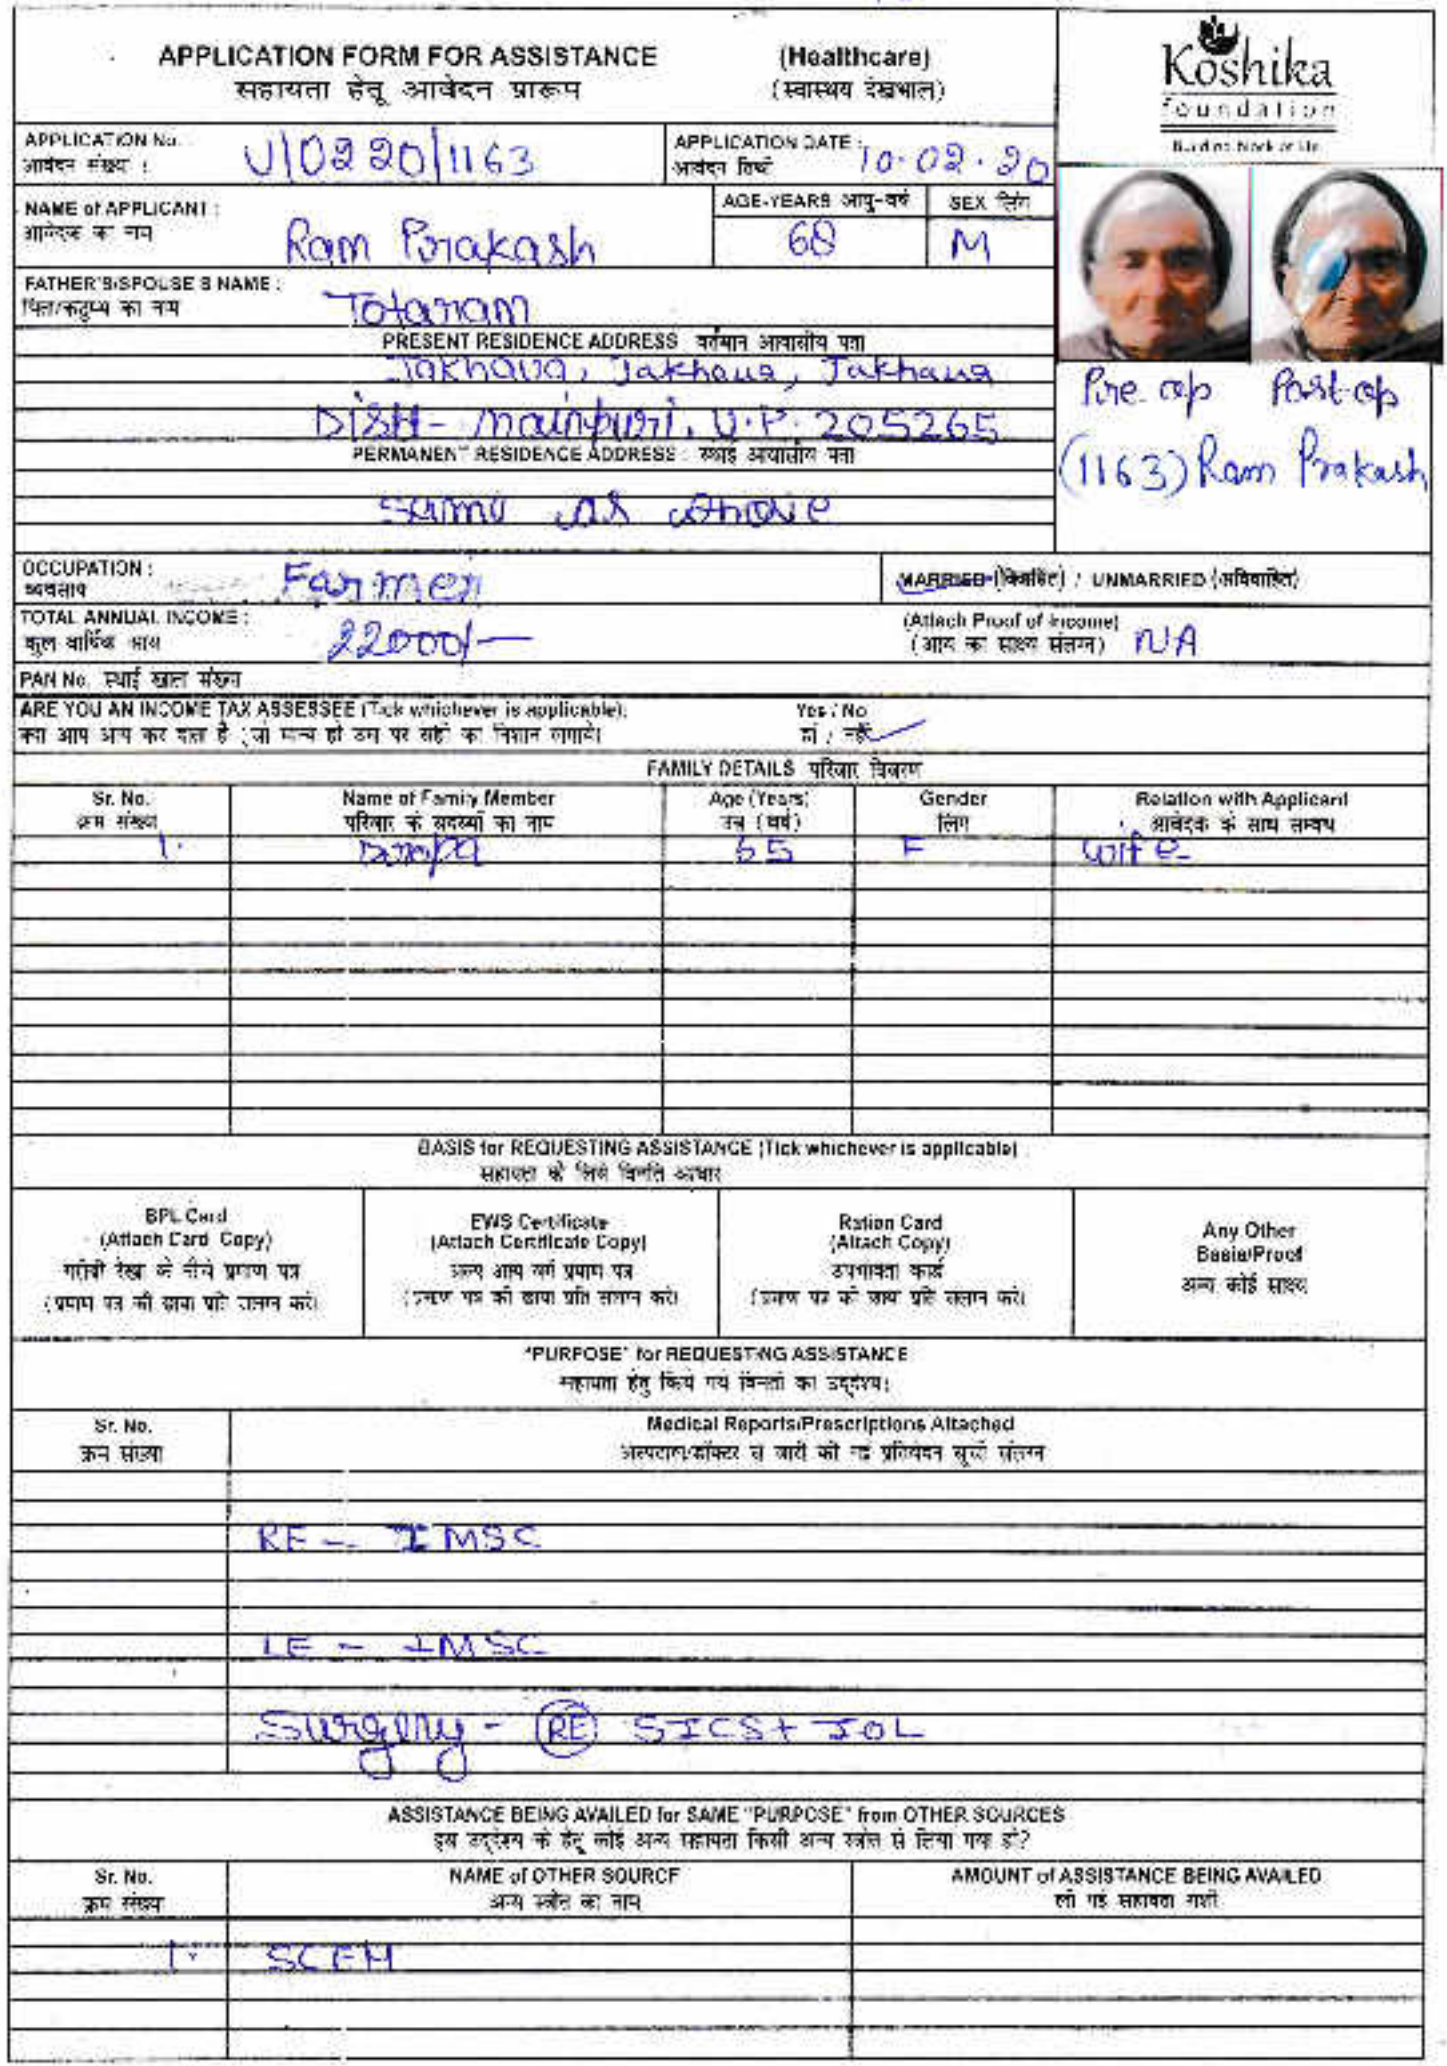 APPLICATION FORM FOR ASSISTANCE (Healthcare)
सहायता हेतू आवेदन प्रारूप (स्वास्थय देखभाल)
Koshika
foundation
APPLICATION No.
आवेदन संख्या :
U/0220/1163
APPLICATION DATE :
आवेदन तिथी
10.02.20
NAME of APPLICANT :
आवेदक का नाम
Ram Prakash
AGE-YEARS आयु-वर्ष
68
SEX लिंग
M
FATHER'S/SPOUSE'S NAME :
पिता/कटुम्ब का नाम
Totaram
PRESENT RESIDENCE ADDRESS वर्तमान आवासीय पता
Jakhaua, Jakhaua, Jakhaua
Distt- Mainpuri, U.P. 205265
PERMANENT RESIDENCE ADDRESS : स्थाई आवासीय पता
Same as above
Pre-op Post-op
(1163) Ram Prakash
OCCUPATION :
व्यवसाय
Farmer
MARRIED (विवाहित) / UNMARRIED (अविवाहित)
TOTAL ANNUAL INCOME :
कुल वार्षिक आय
22000/-
(Attach Proof of Income)
(आय का साक्ष्य संलग्न) N/A
PAN No. स्थाई खाता संख्या
ARE YOU AN INCOME TAX ASSESSEE (Tick whichever is applicable): Yes / No
क्या आप आय कर दाता है (जो मान्य हो उस पर सही का निशान लगाये। हां / नहीं
FAMILY DETAILS परिवार विवरण
Sr. No. Name of Family Member Age (Years) Gender Relation with Applicant
क्रम संख्या परिवार के सदस्यों का नाम उम्र (वर्ष) लिंग आवेदक के साथ सम्बंध
1. 65 F wife
BASIS for REQUESTING ASSISTANCE (Tick whichever is applicable)
सहायता के लिये विनति आधार
BPL Card
(Attach Card Copy)
गरीबी रेखा के नीचे प्रमाण पत्र
(प्रमाण पत्र की छाया प्रति संलग्न करें।
EWS Certificate
(Attach Certificate Copy)
अल्प आय वर्ग प्रमाण पत्र
(प्रमाण पत्र की छाया प्रति संलग्न करें।
Ration Card
(Attach Copy)
उपभोक्ता कार्ड
(प्रमाण पत्र की छाया प्रति संलग्न करें।
Any Other
Basis/Proof
अन्य कोई साक्ष्य
"PURPOSE" for REQUESTING ASSISTANCE
सहायता हेतु किये गये विनती का उद्देश्य:
Sr. No. Medical Reports/Prescriptions Attached
क्रम संख्या अस्पताल/डॉक्टर से जारी की गई प्रतिवेदन सूची संलग्न
RE - IMSC
LE - IMSC
Surgery - RE SICS + IOL
ASSISTANCE BEING AVAILED for SAME "PURPOSE" from OTHER SOURCES
इस उद्देश्य के हेतू कोई अन्य सहायता किसी अन्य स्त्रोत से लिया गया हो?
Sr. No. NAME of OTHER SOURCE AMOUNT of ASSISTANCE BEING AVAILED
क्रम संख्या अन्य स्त्रोत का नाम ली गई सहायता राशी
1. SCEH